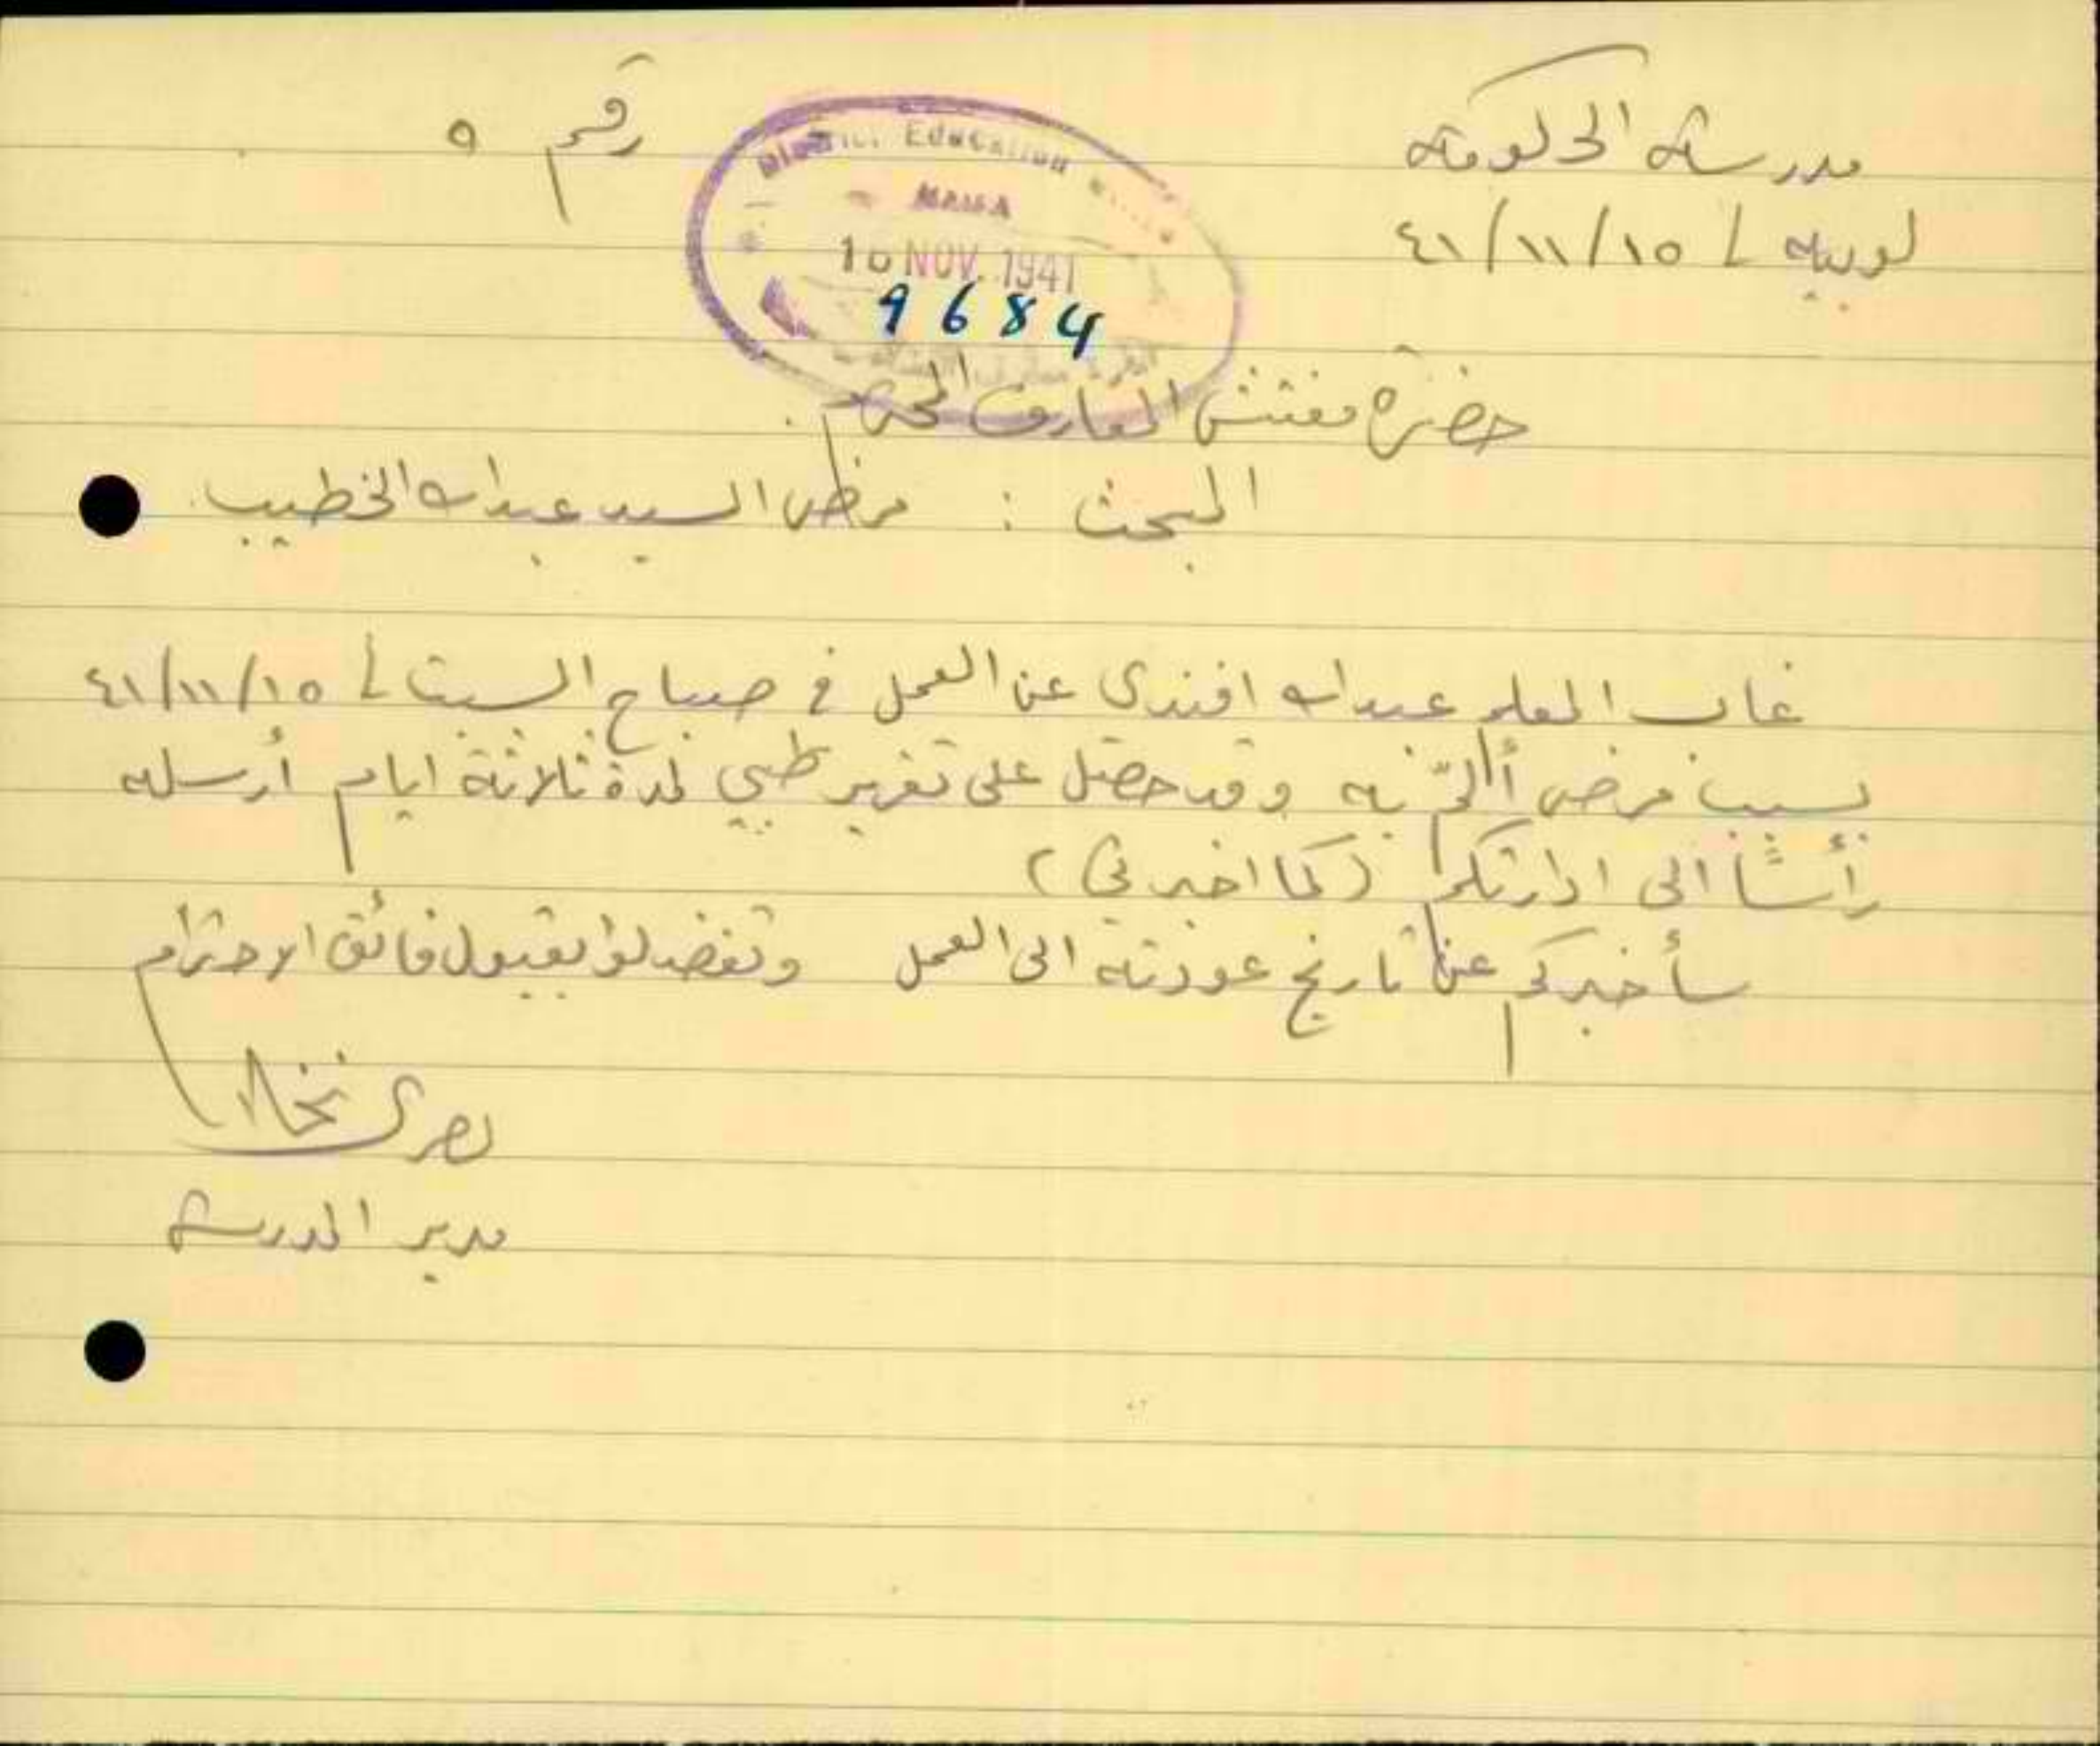 مدرسة الحكومة رقم ٩
لوبيه / ١٥/ ١١/ ٤١
District Education
16 NOV. 1941
9684
حضرة مفتش المعارف المحترم.
البحث : مرض السيد عبدالله الخطيب
غاب المعلم عبدالله افندي عن العمل في صباح السبت / ١٥/ ١١/ ٤١
بسبب مرض ألمّ به وقد حصل على تقرير طبي لمدة ثلاثة ايام أرسله
رأساً الى ادارتكم (كما اخبرني)
سأخبركم عن تاريخ عودته الى العمل وتفضلوا بقبول فائق الاحترام
مدير المدرسة